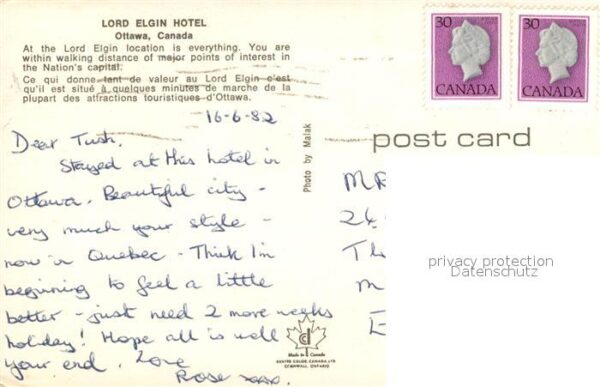 LORD ELGIN HOTEL
Ottawa, Canada
At the Lord Elgin location is everything. You are
within walking distance of major points of interest
in the Nation's capital.
Ce qui donne tant de valeur au Lord Elgin c'est
qu'il est situé à quelques minutes de marche de la
plupart des attractions touristiques d'Ottawa.
30
CANADA
30
CANADA
16-6-82
post card
Photo by Malak
Dear Tush,
Stayed at this hotel in
Ottawa. Beautiful city -
very much your style -
now in Quebec - Think I'm
beginning to feel a little
better - just need 2 more weeks
holiday! Hope all is well
your end. Love
Rose xxx.
MR
24
Th
M
E
privacy protection
Datenschutz
Made in Canada
DEXTER COLOR CANADA LTD.
CORNWALL, ONTARIO